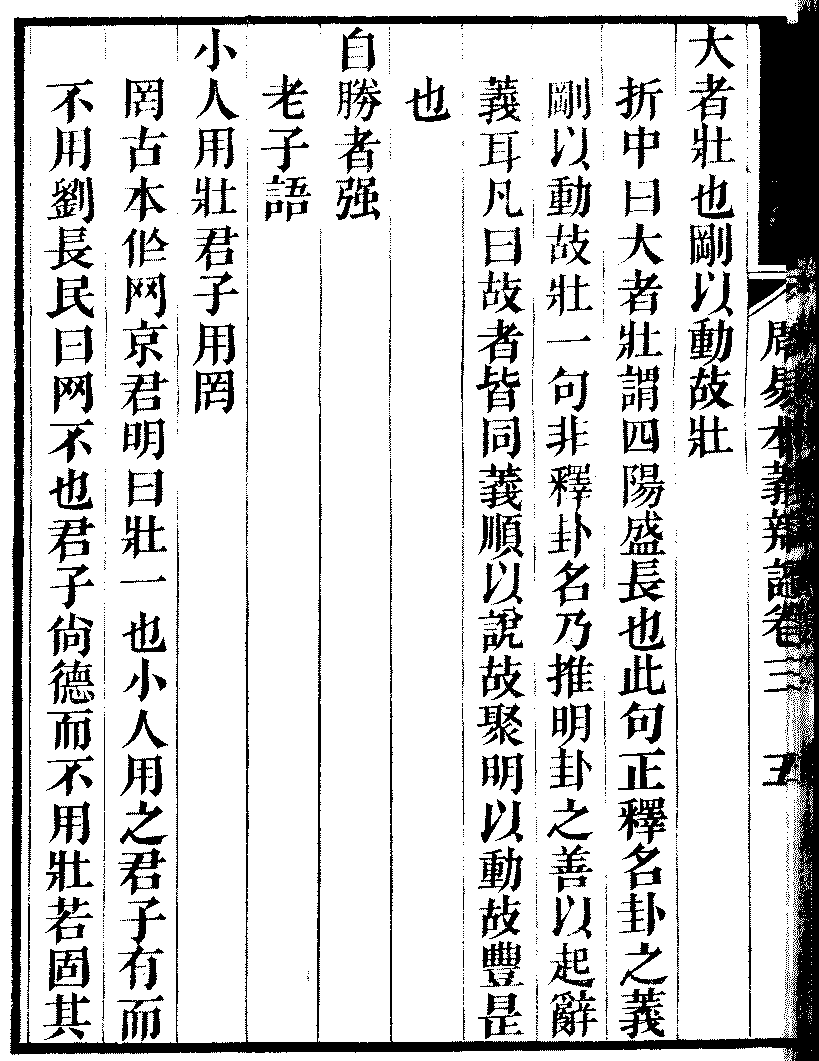 大者壯也剛以動故壯
折中曰大者壯謂四陽盛長也此句正釋名卦之義
剛以動故壯一句非釋卦名乃推明卦之善以起辭
義耳凡曰故者皆同義順以說故聚明以動故豐是
也
自勝者强
老子語
小人用壯君子用罔
罔古本作网京君明曰壯一也小人用之君子有而
不用劉長民曰网不也君子尙德而不用壯若固其
周易本義辨證卷三
五